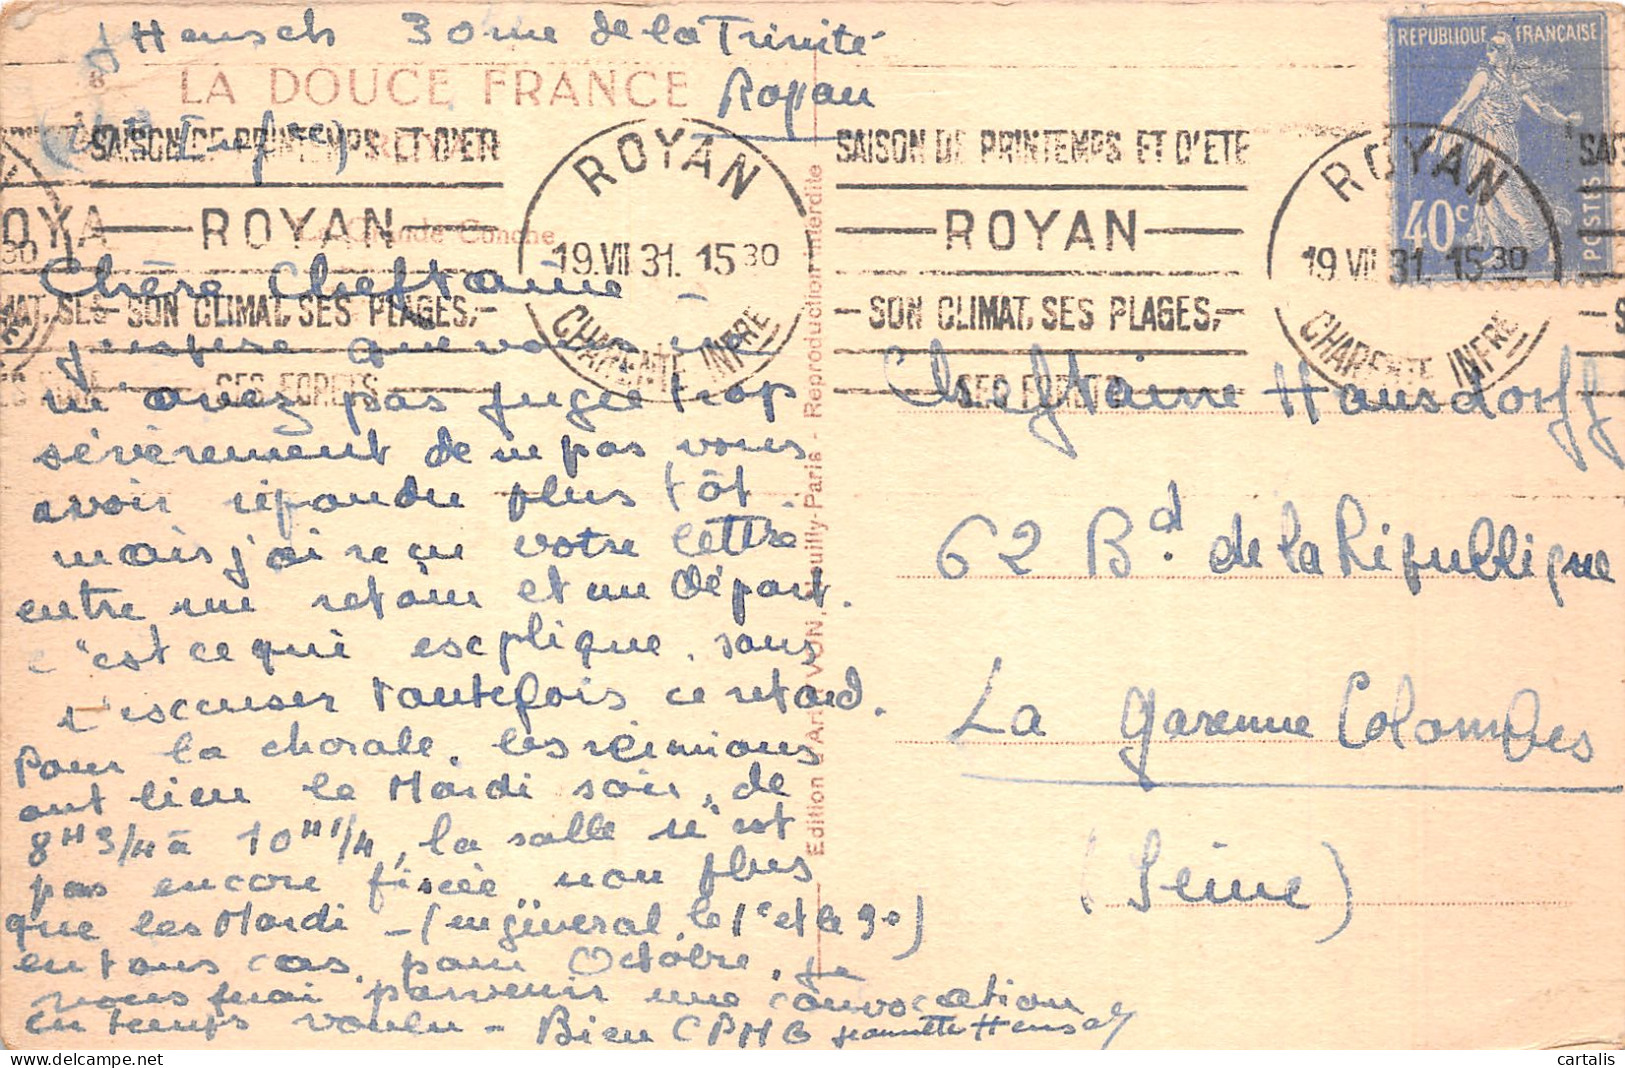 J Hensch 30 rue de la Trinité
Royan
LA DOUCE FRANCE
ROYAN
La Grande Conche
(Ch. Infre)
SAISON DE PRINTEMPS ET D'ETE
ROYAN
SON CLIMAT, SES PLAGES,
SES FORETS
ROYAN
19.VII 31. 15 30
CHARENTE INFRE
SAISON DE PRINTEMPS ET D'ETE
ROYAN
SON CLIMAT, SES PLAGES,
SES FORETS
ROYAN
19 VII 31. 15 30
CHARENTE INFRE
REPUBLIQUE FRANÇAISE
40c
POSTES
Chère Cheftaine -
j'espère que vous ne
m'avez pas jugée trop
sévèrement de ne pas vous
avoir répondu plus tôt.
mais j'ai reçu votre lettre
entre un retour et un départ.
c'est ce qui esxplique, sans
l'esxcuser toutefois ce retard.
Pour la chorale, les réunions
ont lieu le Mardi soir, de
8H3/4 à 10H1/4, la salle n'est
pas encore fixée non plus
que les Mardi - (en général, le 1e et le 3e)
en tous cas, pour Octobre, je
vous ferai parvenir une convocation
en temps voulu - Bien CPMG Jeannette Hensch
Edition d'Art YVON, Neuilly-Paris - Reproduction interdite
Cheftaine Hausdorff
62 Bd. de la République
La Garenne Colombes
(Seine)
cartalis
delcampe.net